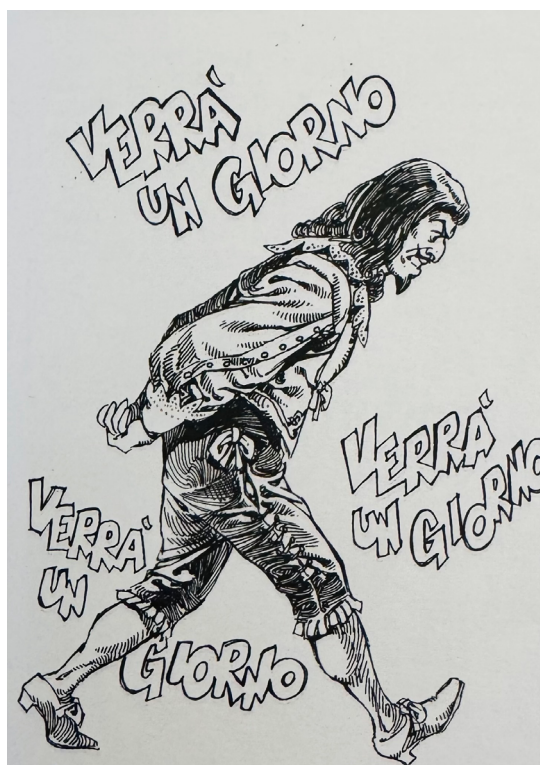 VERRÀ
UN GIORNO
VERRÀ
UN GIORNO
VERRÀ
UN
GIORNO